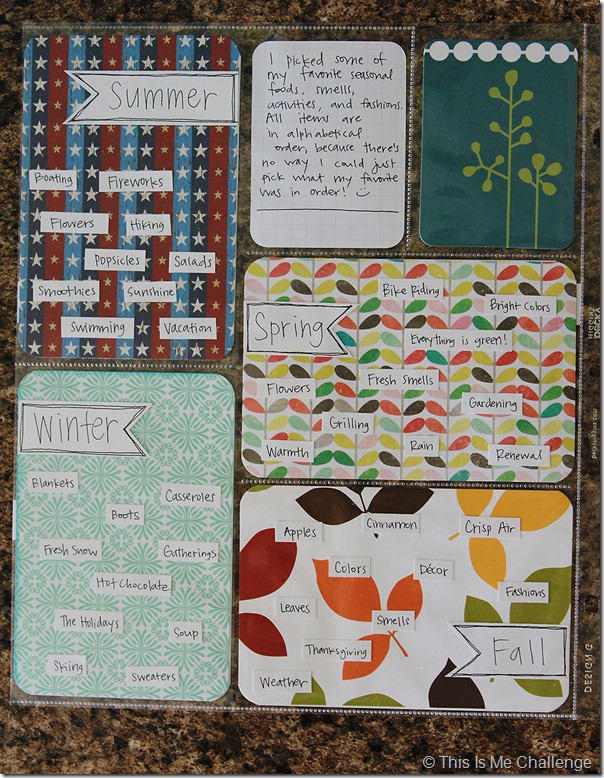 Summer
Boating Fireworks
Flowers Hiking
Popsicles Salads
Smoothies Sunshine
Swimming Vacation
I picked some of
my favorite seasonal
foods, smells,
activities, and fashions.
All items are
in alphabetical
order, because there's
no way I could just
pick what my favorite
was in order!
Spring
Bike Riding
Bright Colors
Everything is green!
Flowers Fresh Smells
Gardening
Grilling
Warmth Rain Renewal
Winter
Blankets
Casseroles
Boots
Fresh Snow Gatherings
Hot Chocolate
The Holidays
Soup
Skiing
Sweaters
Apples Cinnamon Crisp Air
Colors Décor
Fashions
Leaves
Smells
Thanksgiving
Weather
Fall
DESIGN G
© This Is Me Challenge